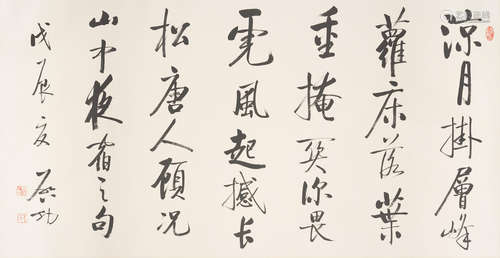 涼月掛層峰
蘿床落葉
重掩關深畏
虎風起撼長
松唐人顧況
山中夜宿之句
戊辰夏 启功